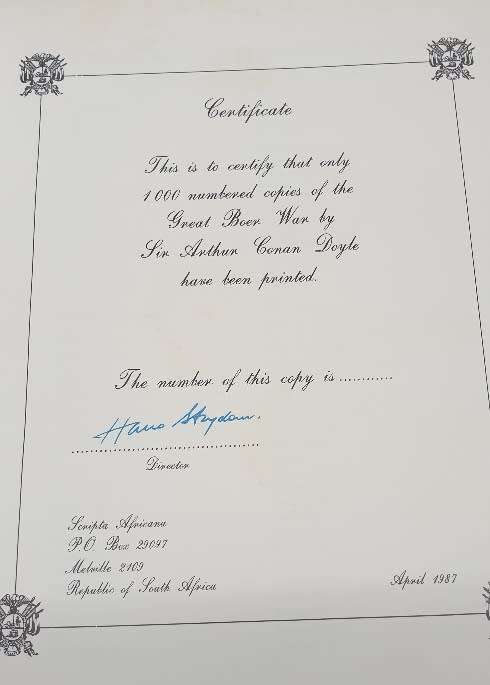 Certificate
This is to certify that only
1 000 numbered copies of the
Great Boer War by
Sir Arthur Conan Doyle
have been printed.
The number of this copy is ............
Hans Strydom.
........................................
Director
Scripta Africana
P.O. Box 29097
Melville 2109
Republic of South Africa
April 1987